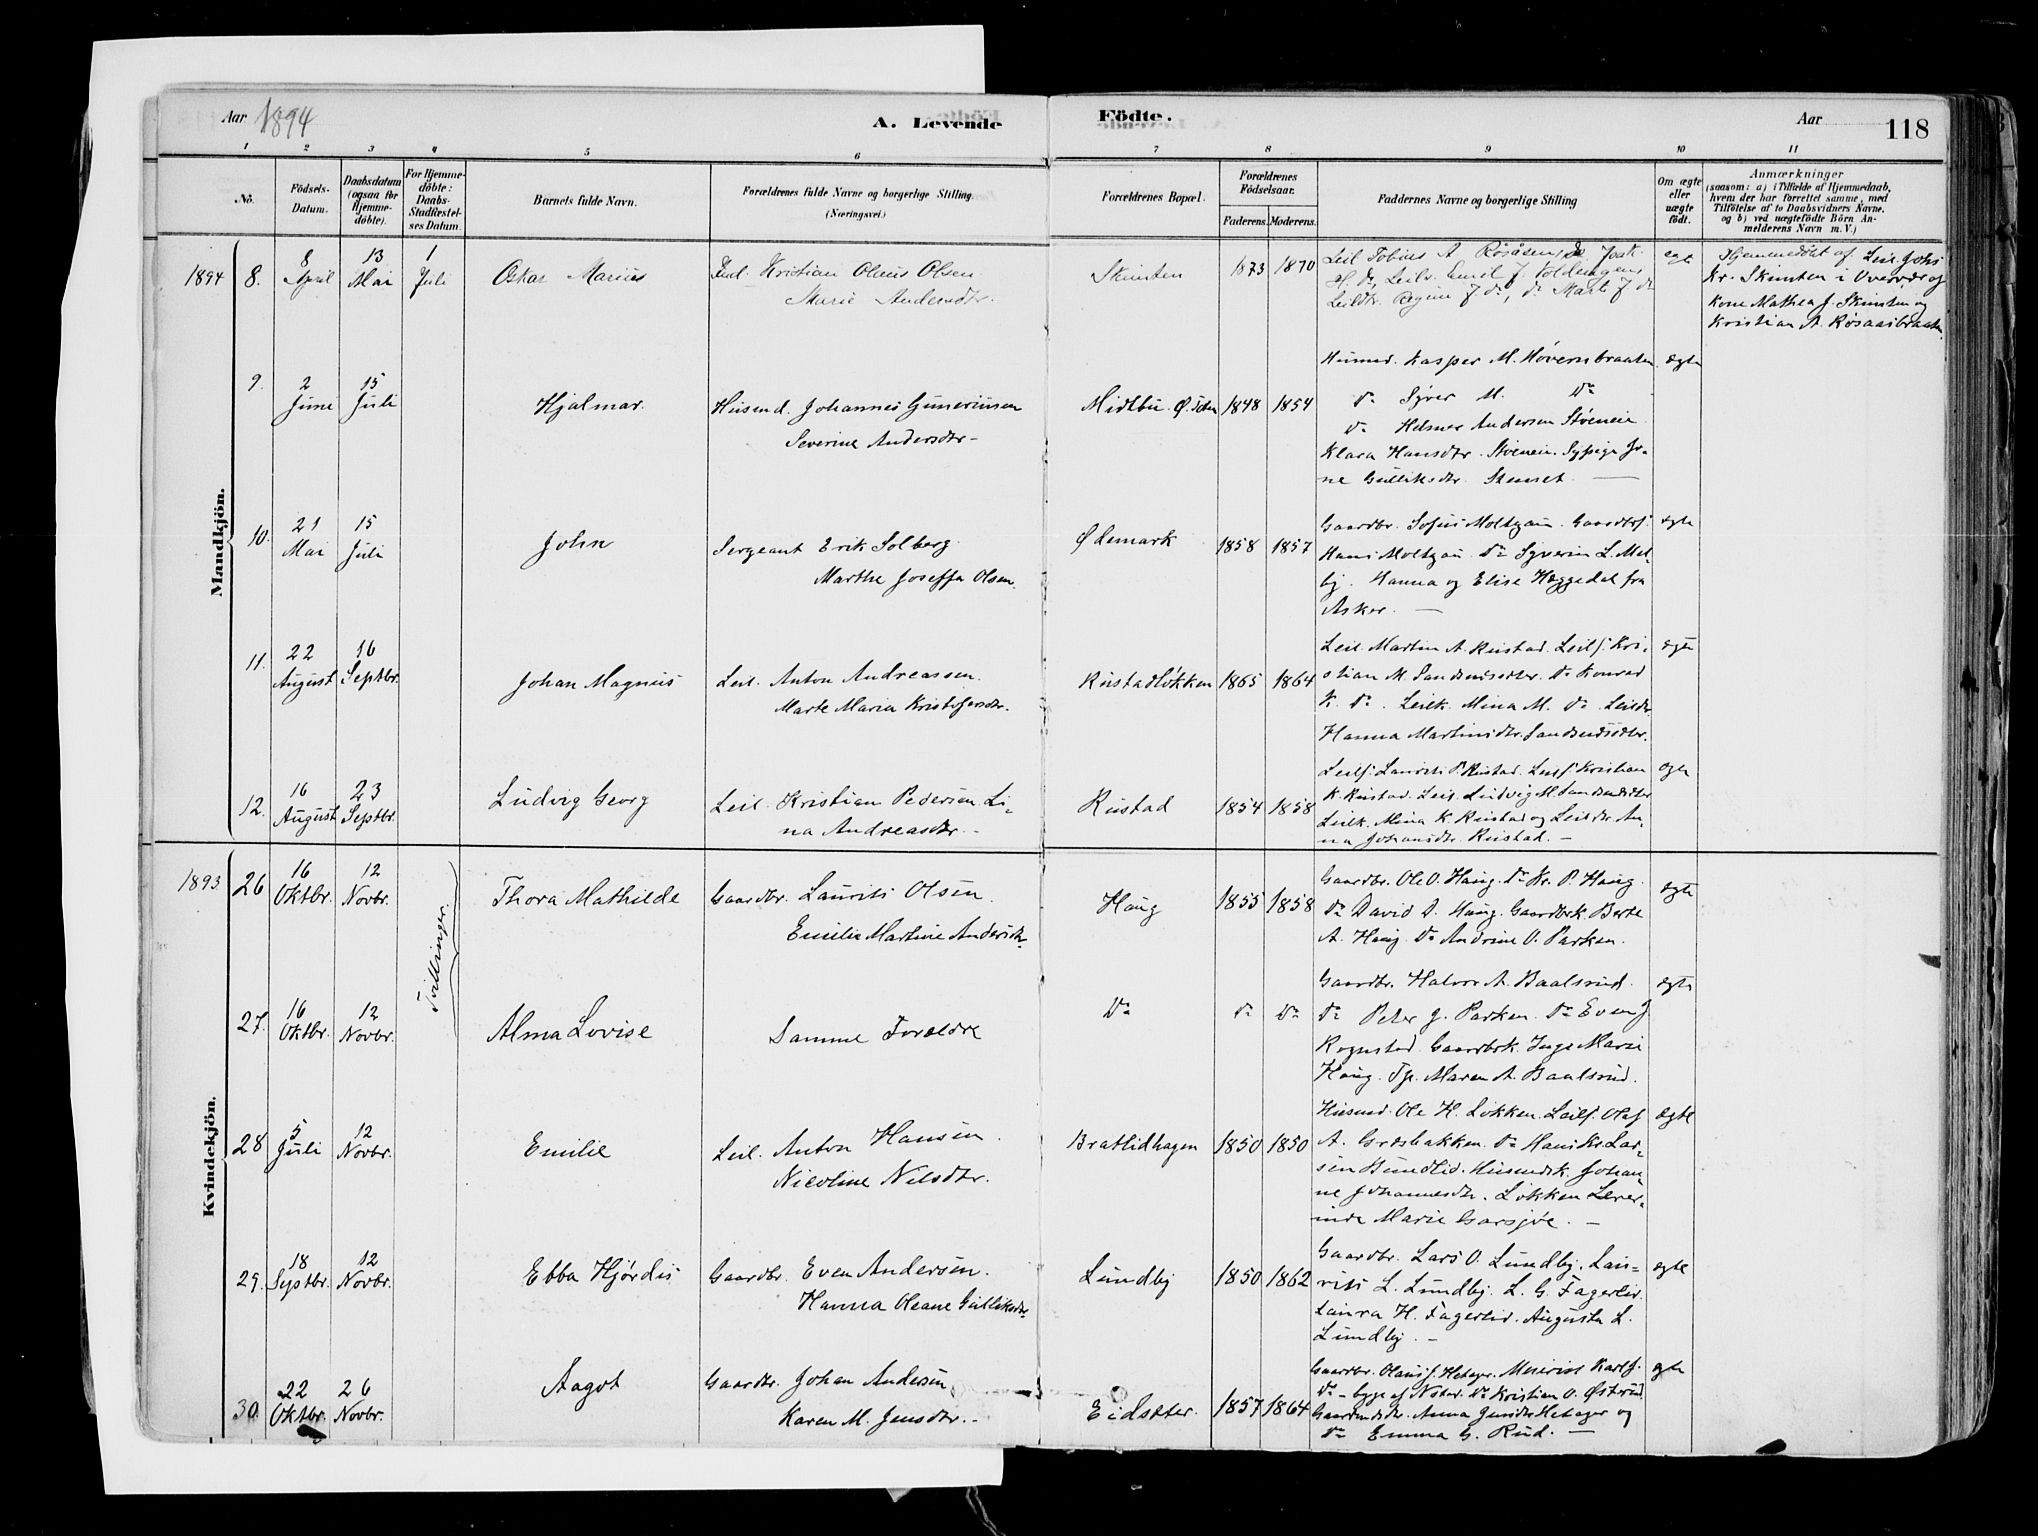 Aar 1894
A. Levende Födte.
Aar
118
1 2 3 4 5 6 7 8 9 10 11
No.
Födsels-
Datum.
Daabsdatum
(ogsaa for
Hjemme-
döbte).
For Hjemme-
döbte:
Daabs-
Stadfæstel-
ses Datum.
Barnets fulde Navn.
Forældrenes fulde Navne og borgerlige Stilling.
(Næringsvei.)
Forældrenes Bopæl.
Forældrenes
Födselsaar.
Faderens. Moderens.
Faddernes Navne og borgerlige Stilling
Om ægte
eller
uægte
födt.
Anmærkninger
(saasom: a) i Tilfælde af Hjemmedaab,
hvem der har forrettet samme, med
Tilföielse af to Daabsvidners Navne.
og b) ved uægtefödte Börn An-
melderens Navn m. V.)
Mandkjön.
1894 8. 8 April 13 Mai 1 Juli
Oskar Marius
Ind. Kristian Olaus Olsen
Marie Andersdtr.
Skinten
1873 1870
Leil Tobias A
egt
Hjemmedöbt af Leil Johs
Kr. Skinten i Overvær af
Kone Mathea J. Skinten og
Kristian A. Røsaasbraaten
9. 2 Juni 15 Juli
Hjalmar.
Husmd. Johannes Guneriusen
Severine Andersdtr.
Midtbu. Ø. Toten
1848 1854
Husmd. Kasper M. Høversbraaten
do Syver M. do
do Helmer Andersen Støveneie
Klara Hansdtr. Sypige Jo-
ne Gulliksdtr. Stenset.
ægte
10. 21 Mai 15 Juli
John
Sergeant Erik Solberg.
Marthe Joseffa Olsen.
Ødemark
1858 1857
Gaardbr. Sofus Moltzau. Gaardbrs.
Hans Moltzau do Syverin L. Mel-
by. Hanna og Elise Heggedal fra
Asker.
ægte
11. 22 August 16 Septbr.
Johan Magnus
Leil. Anton Andreassen.
Marte Maria Kristofersdtr.
Rustadløkken
1865 1864
Leil. Martin A. Rustad. Leils. Kri-
stian M. do Konrad
K. do. Leilk. Mina M. do Leildtr.
Hanna Martinsdtr.
ægte
12. 16 August 23 Septbr.
Ludvig Georg
Leil. Kristian Pedersen Li-
na Andreasdtr.
Rustad
1854 1858
Leils. Laurits P. Rustad. Leils. Kristian
K. Rustad. Leil. Ludvig M.
Leilk. Mina K. Rustad og Leildtr. An-
na Johansdtr. Rustad.
egte
Kvindekjön.
1893 26 16 Oktbr. 12 Novbr.
Tvillinger.
Thora Mathilde
Gaardbr. Laurits Olsen.
Emilie Martine Andersdtr.
Haug
1855 1858
Gaardbr. Ole O. Haug. do Kr. P. Haug.
do David D. Haug. Gaardbrk. Berte
A. Haug. do Andrine O. Parken.
ægte
27. 16 Oktbr. 12 Novbr.
Alma Lovise
Samme Forældre
do do do
Gaardbr. Halvor A. Baalsrud.
do Peter J. Parken. do Even J.
Rognstad. Gaardbrk. Inge Marie
Haug. Tp. Maren A. Baalsrud.
ægte
28. 5 Juli 12 Novbr.
Emilie
Leil. Anton Hansen.
Nicoline Nilsdtr.
Bratlidhagen
1850 1850
Husmd. Ole H. Løkken. Leils. Olaf
A. Græsbakken. do Hans Kr. Lar-
sen Bundlid. Husmdsk. Johan-
ne Johannesdtr. Løkken Lærer-
inde Marie Garsjøe.
ægte
29. 18 Septbr. 12 Novbr.
Ebba Hjørdis
Gaardbr. Even Andersen.
Hanna Oleane Gulliksdtr.
Lundby
1850 1862
Gaardbr. Lars O. Lundby. Lau-
rits L. Lundby. L. G. Fagerlid.
Laura H. Fagerlid. Augusta L.
Lundby.
egte
30. 22 Oktbr. 26 Novbr.
Aagot
Gaardbr. Johan Andersen
Karen M. Jensdtr.
Eidsæter.
1857 1864
Gaardbr. Olaus J. Hetager. Karl J.
do Kristian O. Østerud
Anna Hetager og
do Emma G. Rud.
egte